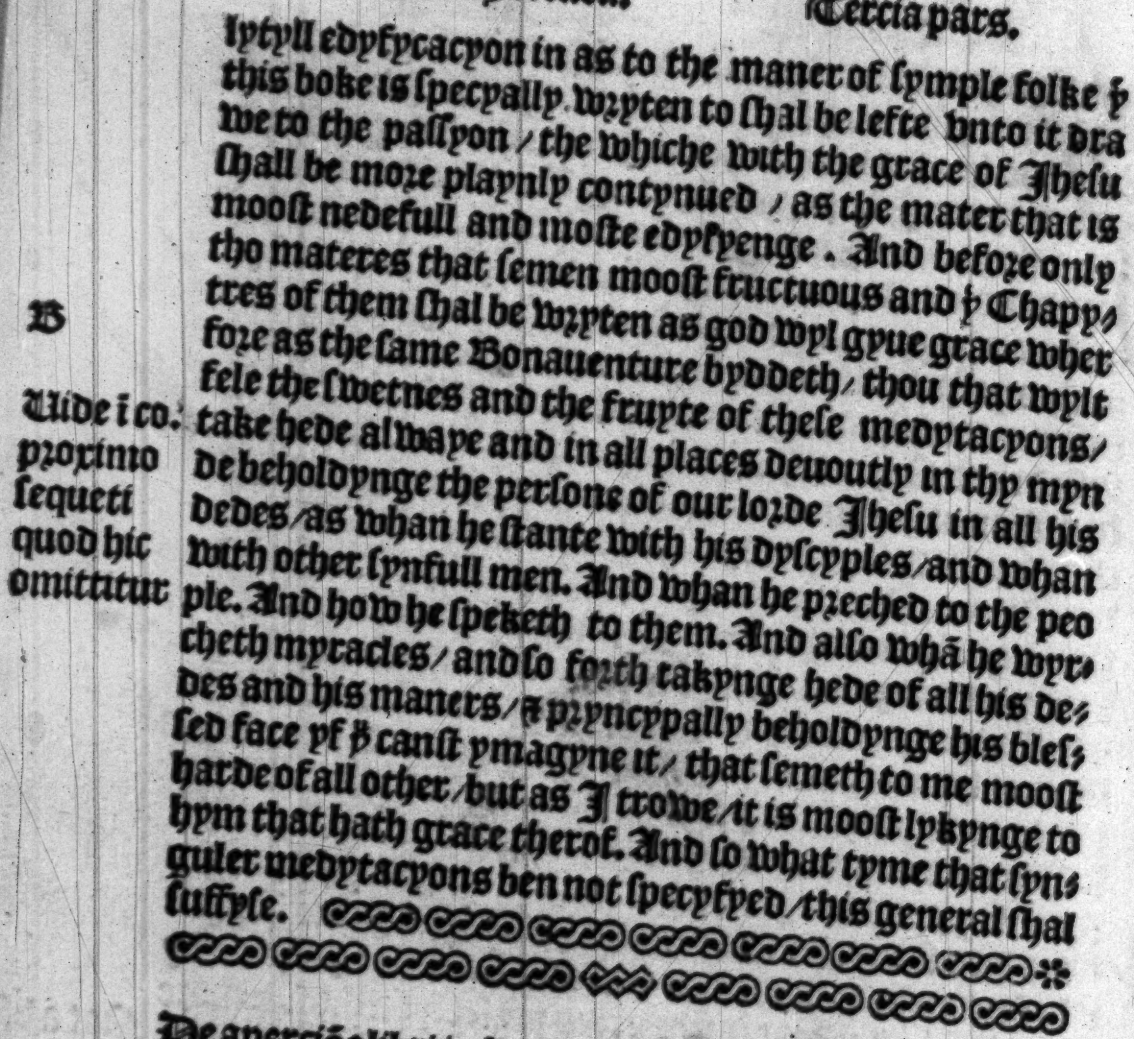 Tercia pars.
lytyll edyfycacyon in as to the maner of symple folke ẏ
this boke is specyally wryten to shal be lefte vnto it dra
we to the passyon / the whiche with the grace of Jhesu
shall be more playnly contynued / as the mater that is
moost nedefull and moste edyfyenge . And before only
tho materes that semen moost fructuous and ẏ Chapy⸗
tres of them shal be wryten as god wyl gyue grace wher
fore as the same Bonauenture byddeth / thou that wylt
fele the swetnes and the fruyte of these medytacyons /
take hede alwaye and in all places deuoutly in thy myn
de beholdynge the persone of our lorde Jhesu in all his
dedes / as whan he stante with his dyscyples / and whan
with other synfull men. And whan he preched to the peo
ple. And how he speketh to them. And also whā he wyr⸗
cheth myracles / and so forth takynge hede of all his de⸗
des and his maners / ⁊ pryncypally beholdynge his bles⸗
sed face yf ẏ canst ymagyne it / that semeth to me moost
harde of all other / but as J trowe / it is moost lykynge to
hym that hath grace therof. And so what tyme that syn⸗
guler medytacyons ben not specyfyed / this general shal
suffyse.
B
Uide ī co.
proximo
sequeti
quod hic
omittitur